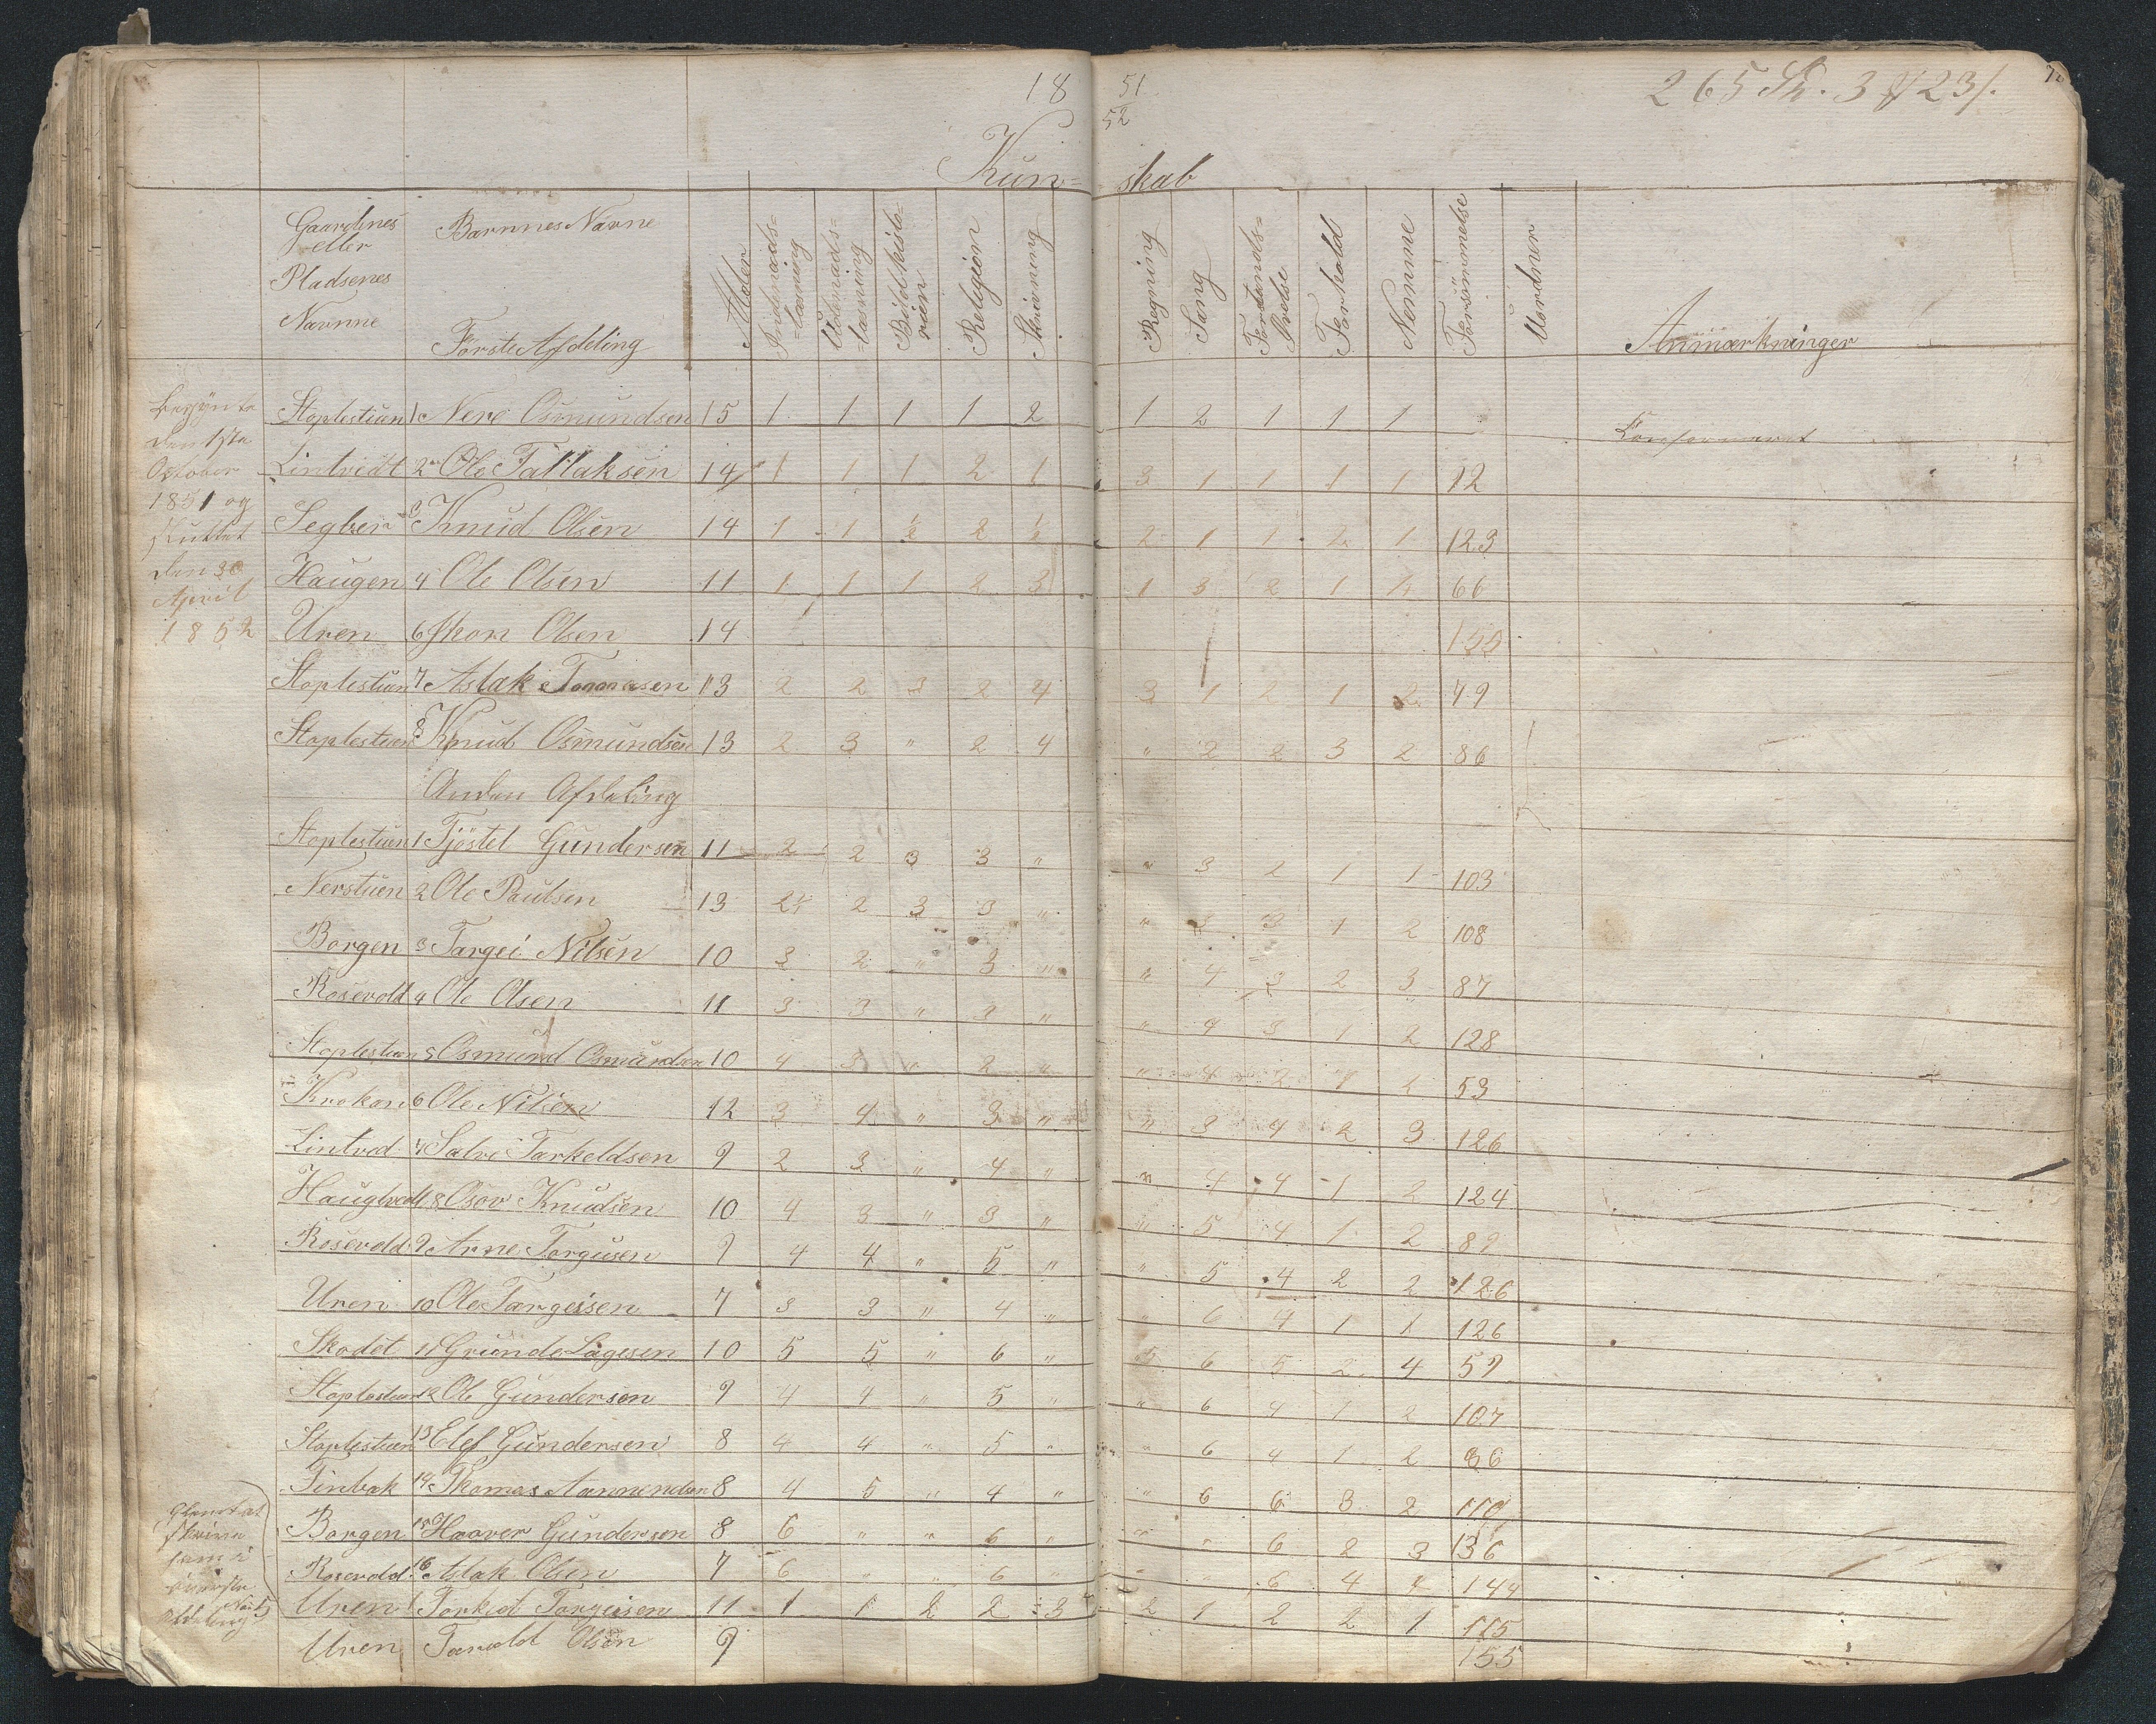 18 51
52
265 Sk. 3 23/.
Kun= skab
Gaardenes eller Pladsenes Navnne
Barnnes Navne
Alder
Indenads= =læsning
Udenads= =læsning
Bibelhisto= rien
Religion
Skrivning
Regning
Sang
Forstands= Øvelse
Forhold
Nemme
Forsømmelse
Uordner
Anmærkninger
Første Afdeling
Begynte
den 1ste
October
1851 og
sluttet
den 30
April
1852
Stoplestuen 1 Neri Osmundsen 15 1 1 1 1 2 1 2 1 1 1 Konfermeret
Lintvedt 2 Ole Tallaksen 14 1 1 1 2 1 3 1 1 1 1 12
Segber 3 Knud Olsen 14 1 1 2 2 1 1 2 1 123
Haugen 4 Ole Olsen 11 1 1 1 2 3 1 3 2 1 66
Uren 6 Olsen 14
Stoplestuen 7 Aslak Tomasen 13 2 2 3 2 4 3 1 2 1 2 49
Stoplestuen 8 Knud Osmundsen 13 2 3 " 2 4 " 2 2 3 2 86
Anden Afdeling
Stoplestuen 1 Tjöstel Gundersen 11 2 2 3 3 " " 3 2 1 1 103
Nerstuen 2 Ole Paulsen 13 2 2 3 3 " " 3 3 1 2 108
Borgen 3 Targei Nilsen 10 3 2 " 3 " " 4 3 2 3 87
Rosevold 4 Ole Olsen 11 3 3 " 3 " " 4 3 1 2 128
Stoplestuen 5 Osmund Osmundsen 10 4 3 " 2 " " 4 2 1 2 53
Krokan 6 Ole Nilsen 12 3 4 " 3 " " 3 4 2 3 126
Lintved 7 Salve Tarkeldsen 9 2 3 " 4 " " 4 4 1 2 124
Haughvedt 8 Osov Knudsen 10 4 3 " 3 " " 5 4 1 2 89
Rosevold 9 Arne Torgusen 9 4 4 " 5 " " 5 4 2 2 126
Uren 10 Ole Targeisen 7 3 3 " 4 " " 6 4 1 1 126
Skodet 11 Grunde Lagesen 10 5 5 " 6 " " 6 5 2 4 59
Stoplestuen 12 Ole Gundersen 9 4 4 " 5 " " 6 4 1 2 107
Stoplestuen 13 Elef Gundersen 8 4 4 " 5 " " 6 4 1 2 86
Finbak 14 Thomas Aanundsen 8 4 5 " 4 " " 6 6 3 2 110
Borgen 15 Haaver Gundersen 8 6 " " 6 " " " 6 2 3 136
Rosevold 16 Aslak Olsen 7 6 " " 6 " " " 6 4 4 144
Uren Torkel Torgeisen 11 1 1 2 2 3 2 1 2 2 1 115
Uren Tarald Olsen 9 155
Glemt at
skrive
øverste
afdeling